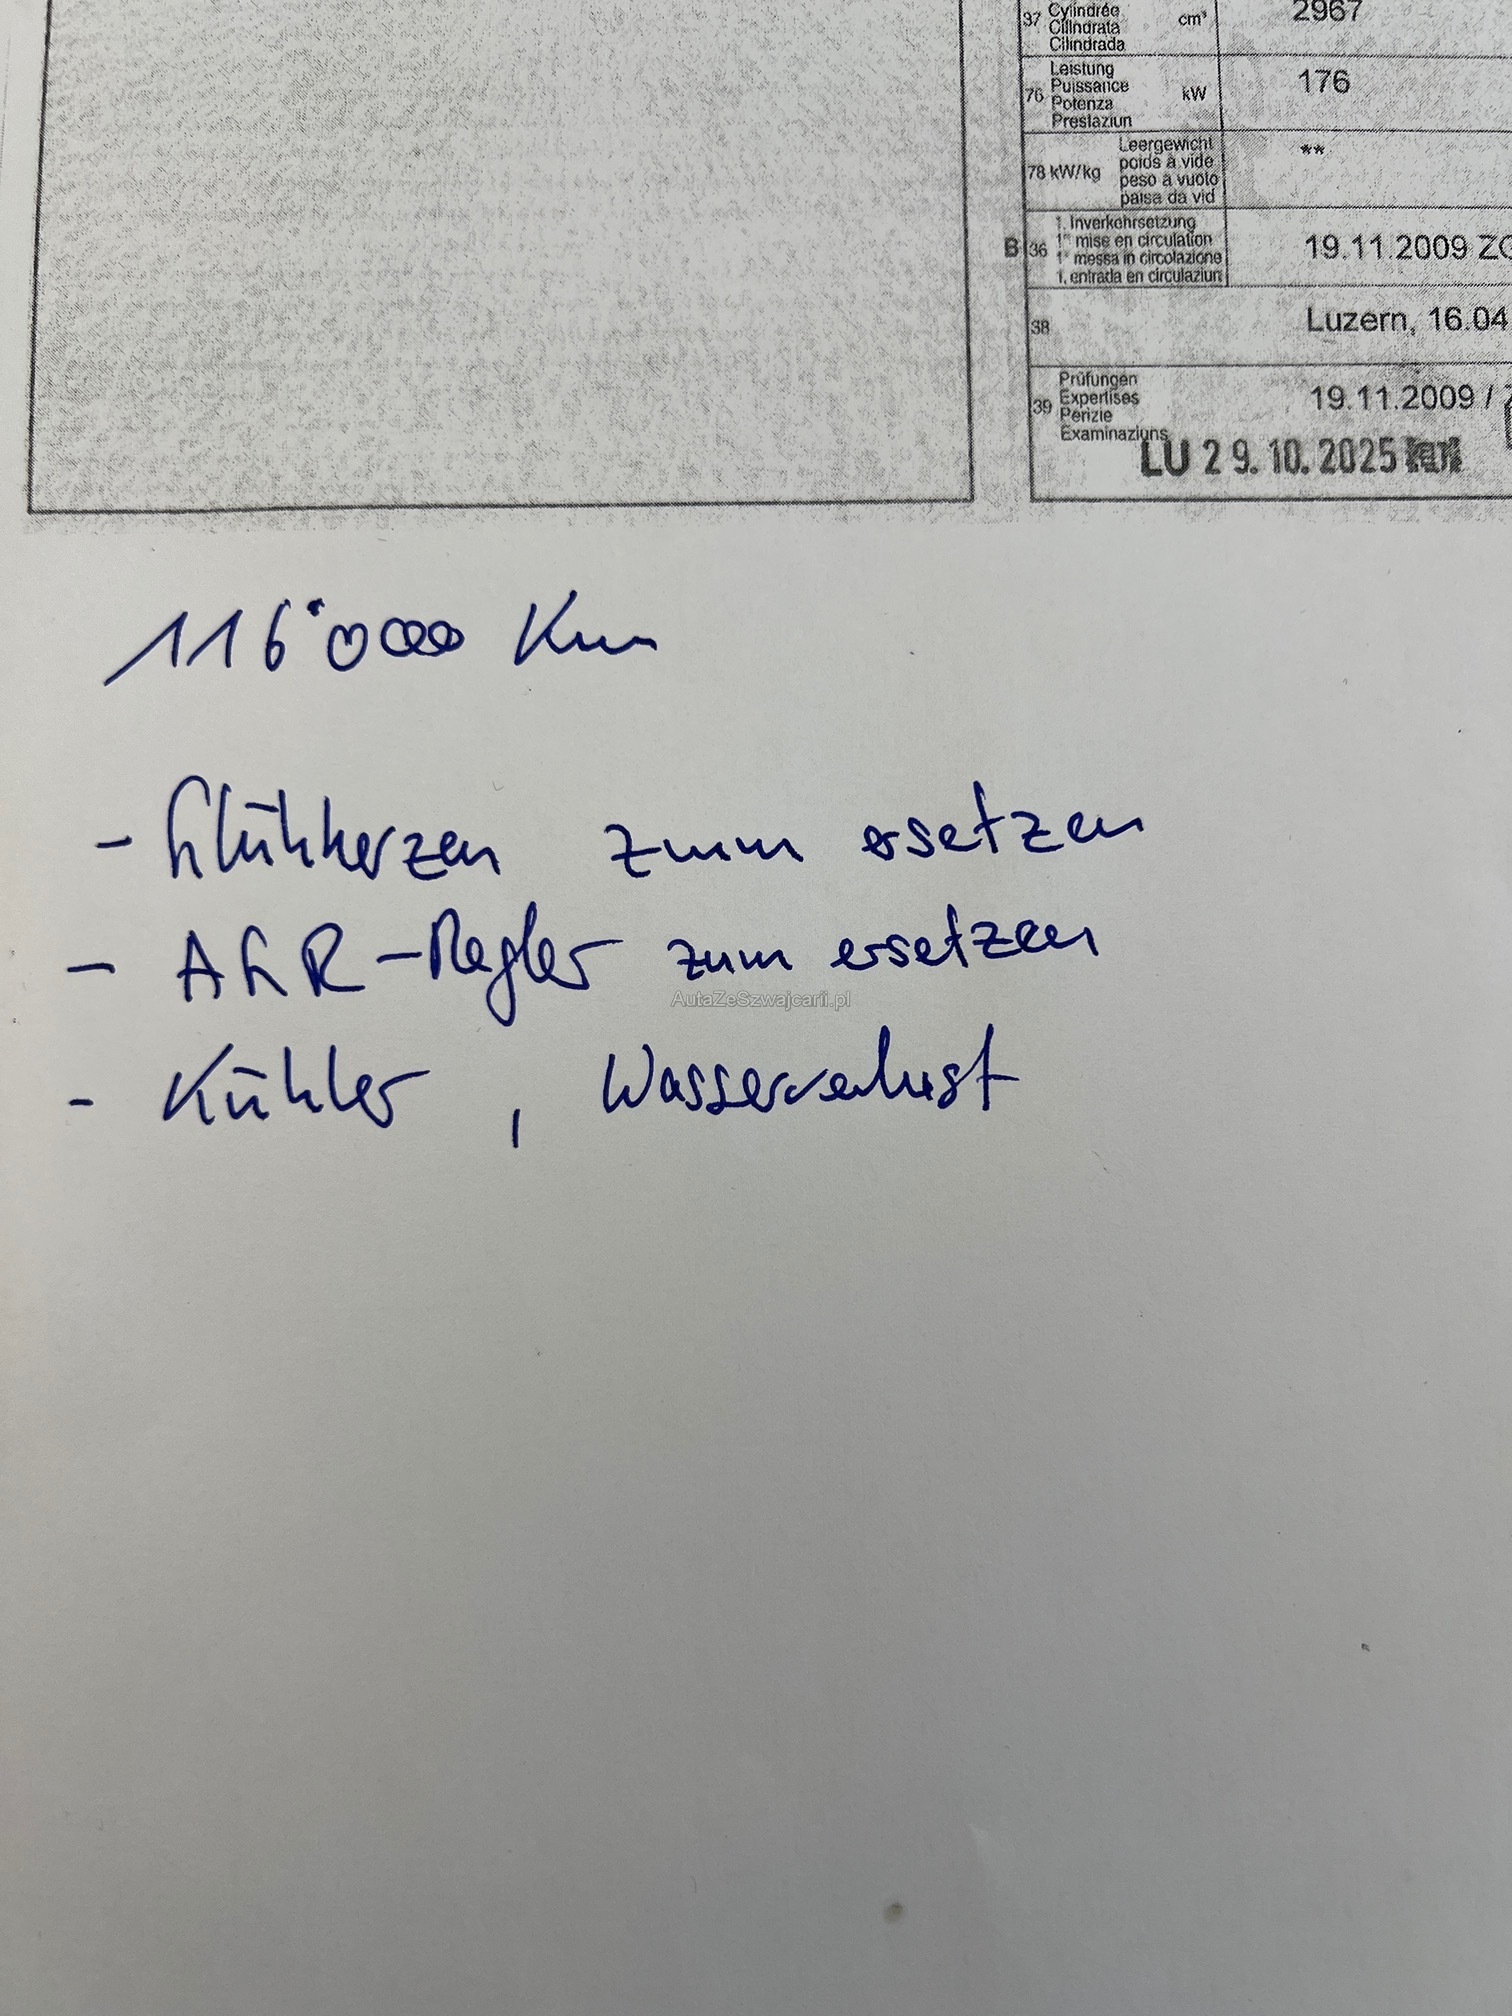 37 Cylindrée cm³ 2967
Cilindrata
Cilindrada
76 Leistung kW 176
Puissance
Potenza
Prestaziun
78 kW/kg Leergewicht **
poids à vide
peso a vuoto
paisa da vid
B 36 1. Inverkehrsetzung 19.11.2009 ZG
1re mise en circulation
1a messa in circolazione
1. entrada en circulaziun
38 Luzern, 16.04
39 Prüfungen 19.11.2009 /
Expertises
Perizie
Examinaziuns
LU 29.10.2025
116'000 Km
- Glühkerzen zum ersetzen
- AGR-Regler zum ersetzen
AutaZeSzwajcarii.pl
- Kühler, Wasserverlust